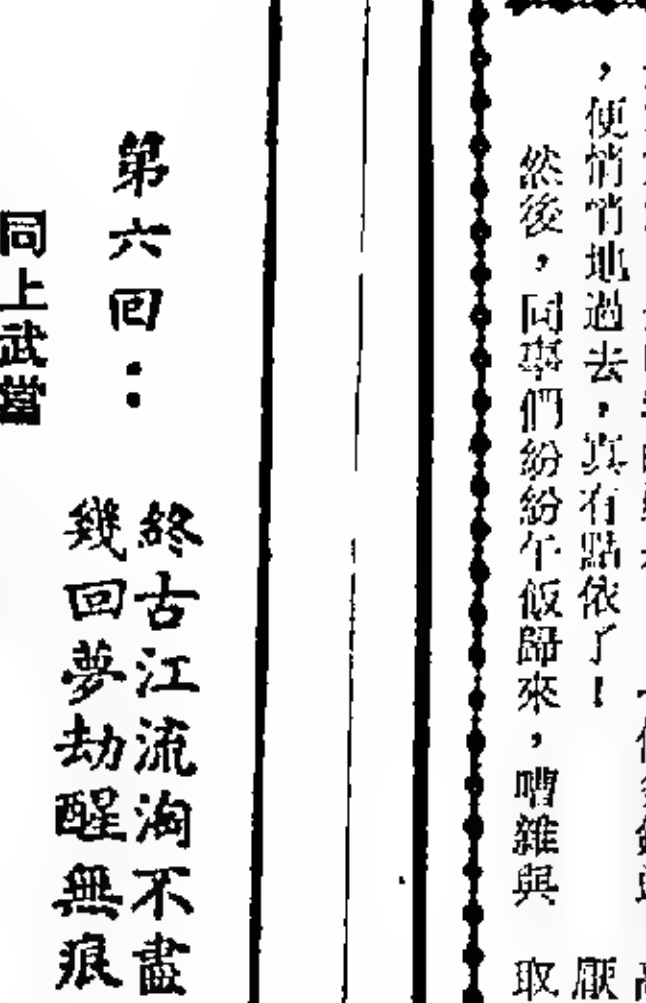 ，便悄悄地過去，真有點依了！
厭
然後，同事們紛紛午飯歸來，嘈雜與
取
第六回：
終古江流淘不盡
幾回夢劫醒無痕
同上武當